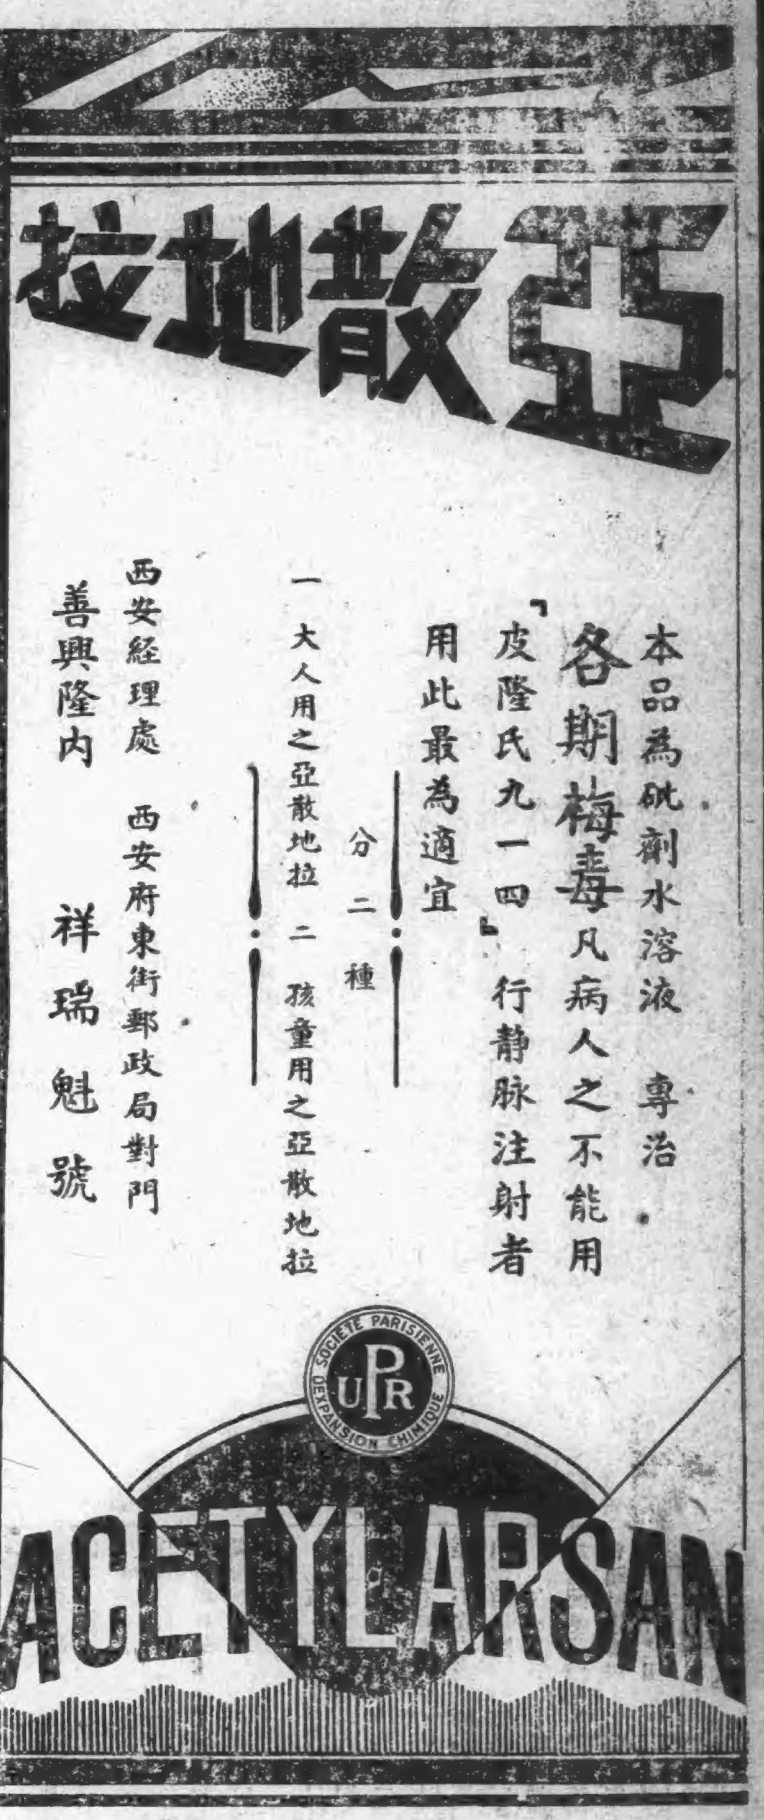 亞散地拉
本品為砒劑水溶液　專治
各期梅毒凡病人之不能用
「皮隆氏九一四」行静脉注射者
用此最為適宜
分二種
一　大人用之亞散地拉　二　孩童用之亞散地拉
西安経理處　西安府東街郵政局對門
善興隆内　祥瑞魁號
SOCIÉTÉ PARISIENNE
D'EXPANSION CHIMIQUE
UPR
ACETYLARSAN